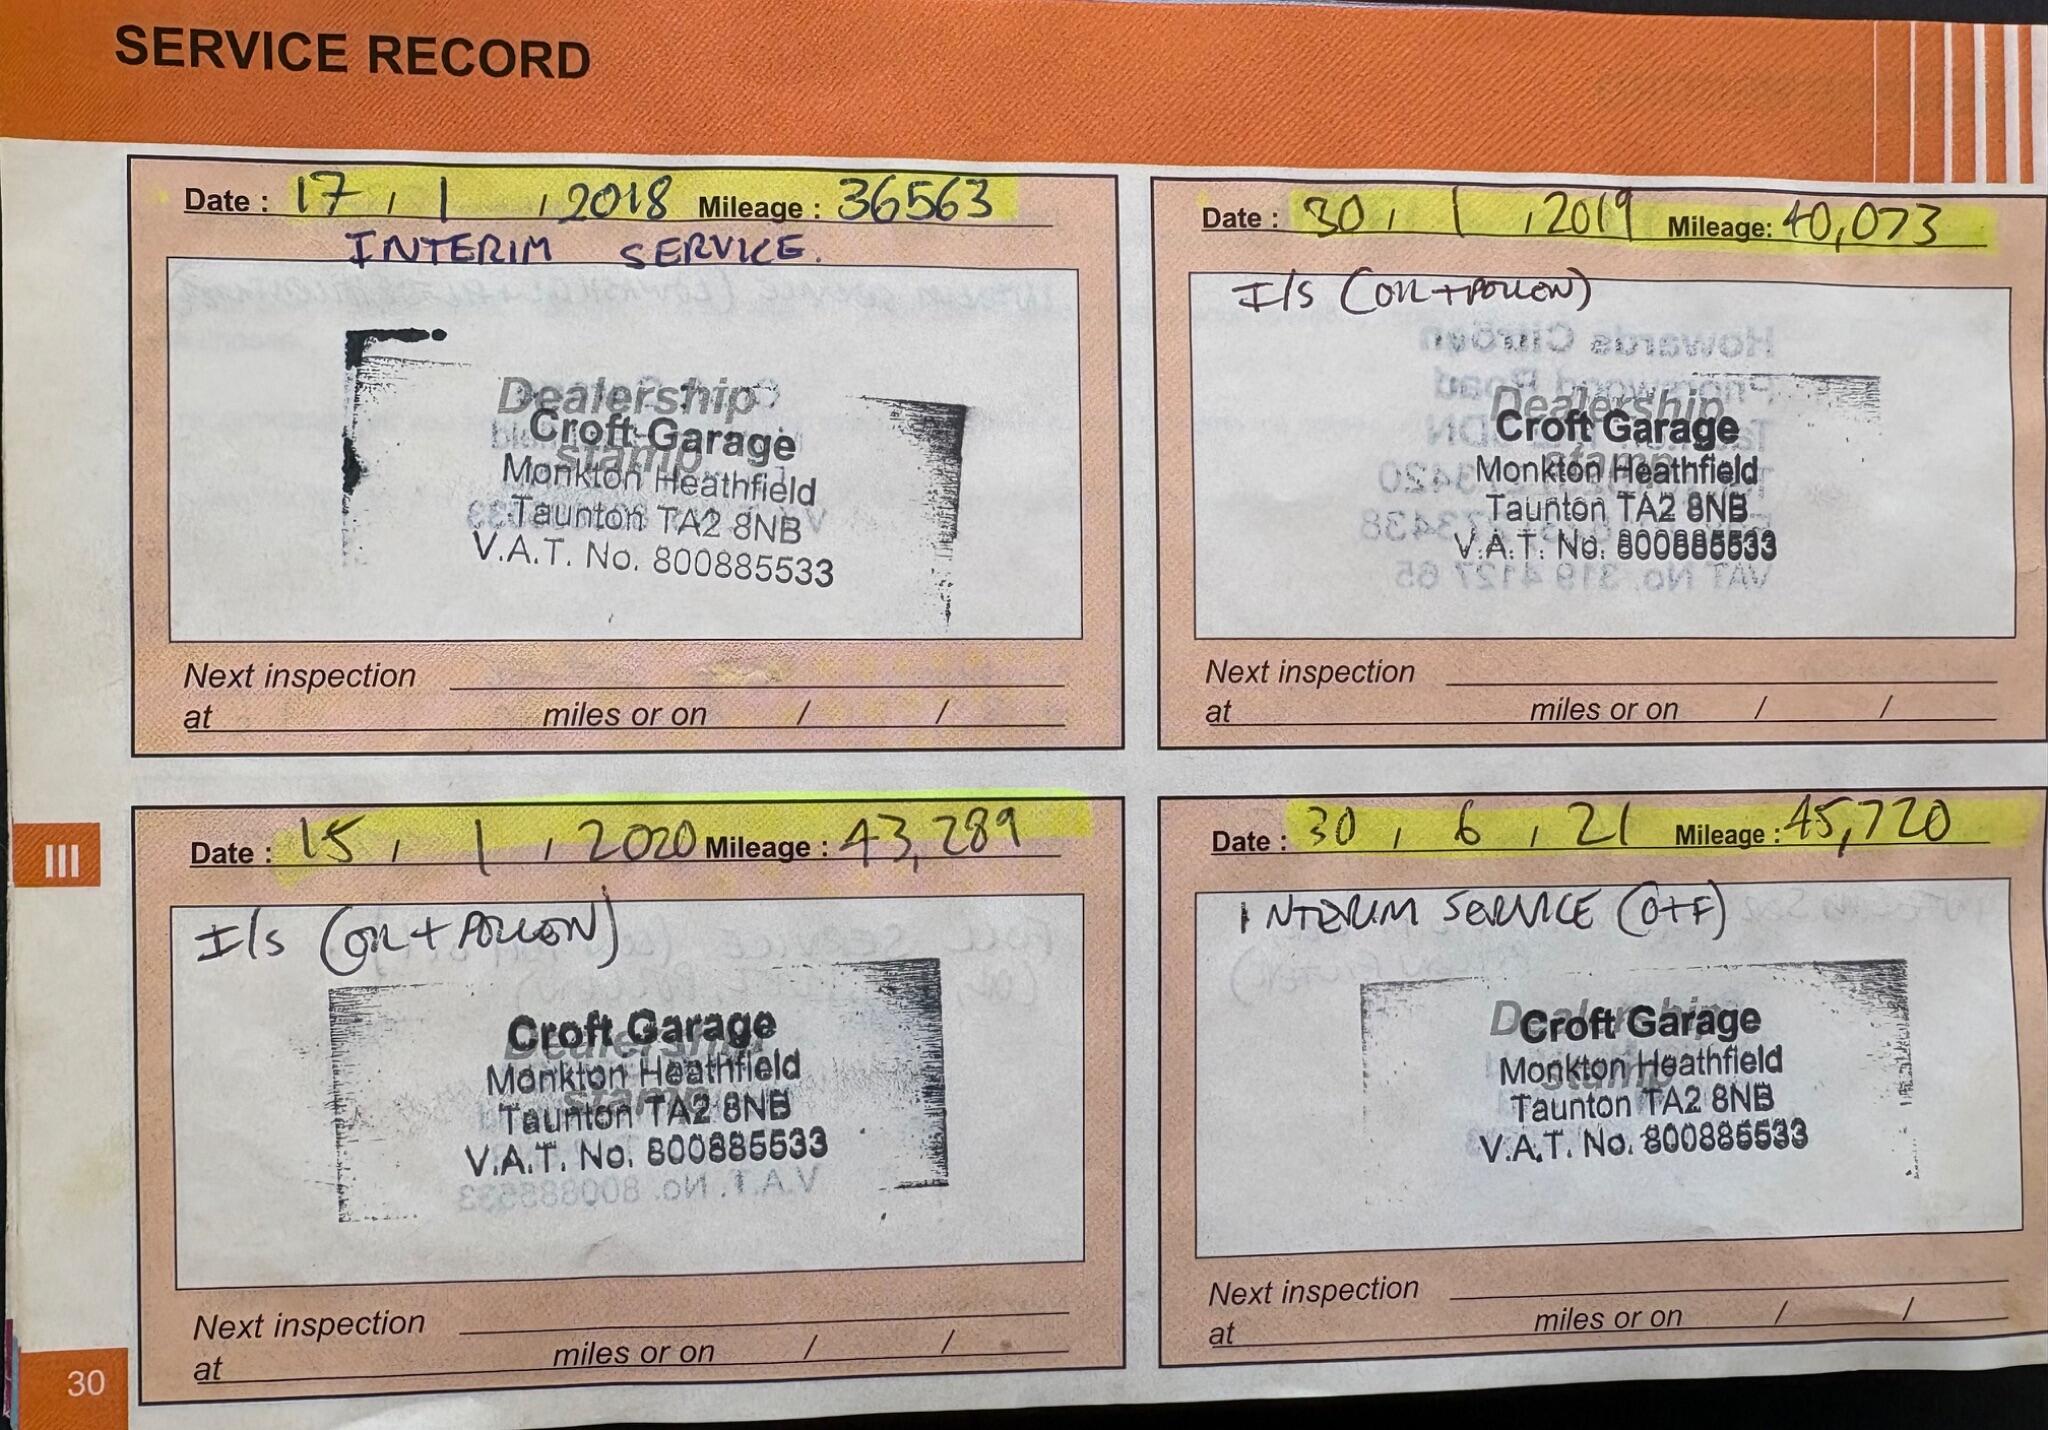 SERVICE RECORD
Date : 17 / 1 / 2018 Mileage : 36563
INTERIM SERVICE.
Dealership
stamp
Croft Garage
Monkton Heathfield
Taunton TA2 8NB
V.A.T. No. 800885533
Next inspection
at miles or on / /
Date : 30 / 1 / 2019 Mileage: 40,073
I/S (OIL + POLLEN)
Dealership
stamp
Croft Garage
Monkton Heathfield
Taunton TA2 8NB
V.A.T. No. 800885533
Next inspection
at miles or on / /
Date : 15 / 1 / 2020 Mileage : 43,289
I/S (OIL + POLLEN)
Dealership
stamp
Croft Garage
Monkton Heathfield
Taunton TA2 8NB
V.A.T. No. 800885533
Next inspection
at miles or on / /
Date : 30 / 6 / 21 Mileage : 45,720
INTERIM SERVICE (O+F)
Dealership
stamp
Croft Garage
Monkton Heathfield
Taunton TA2 8NB
V.A.T. No. 800885533
Next inspection
at miles or on / /
III
30